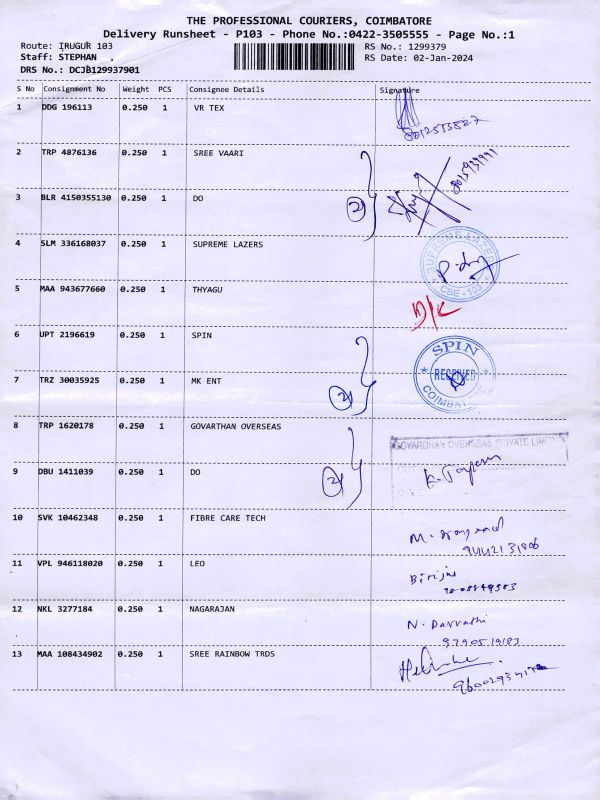 THE PROFESSIONAL COURIERS, COIMBATORE
Delivery Runsheet - P103 - Phone No.:0422-3505555 - Page No.:1
Route: IRUGUR 103 RS No.: 1299379
Staff: STEPHAN . RS Date: 02-Jan-2024
DRS No.: DCJB129937901
S No Consignment No Weight PCS Consignee Details Signature
1 DDG 196113 0.250 1 VR TEX
2 TRP 4876136 0.250 1 SREE VAARI
3 BLR 4150355130 0.250 1 DO 2
4 SLM 336168037 0.250 1 SUPREME LAZERS
SUPREME LAZERS
CBE - 103
5 MAA 943677660 0.250 1 THYAGU
D/L
6 UPT 2196619 0.250 1 SPIN
SPIN
RECEIVED
COIMBATORE
7 TRZ 30035925 0.250 1 MK ENT 2
8 TRP 1620178 0.250 1 GOVARTHAN OVERSEAS
GOVARDHAN OVERSEAS PRIVATE LIMITED
9 DBU 1411039 0.250 1 DO 2
10 SVK 10462348 0.250 1 FIBRE CARE TECH
11 VPL 946118020 0.250 1 LEO
12 NKL 3277184 0.250 1 NAGARAJAN
N. Parvathi
9790519183
13 MAA 108434902 0.250 1 SREE RAINBOW TRDS